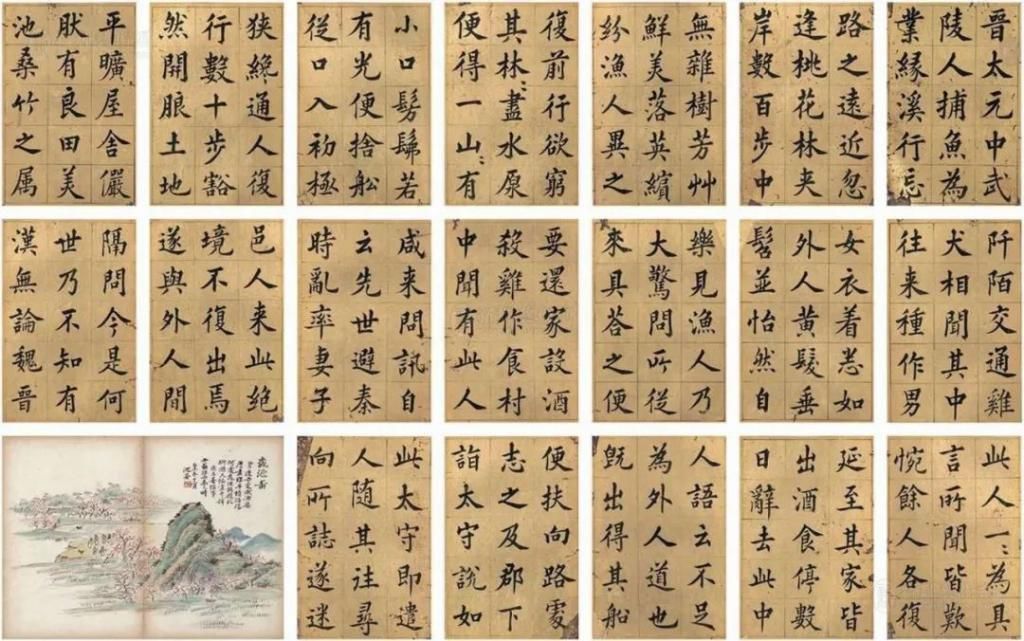 晋太元中武
陵人捕魚為
業縁溪行忘
路之遠近忽
逢桃花林夹
岸數百步中
無雜樹芳艸
鮮美落英繽
紛漁人異之
復前行欲窮
其林:盡水原
便得一山:有
小口髣髴若
有光便捨船
從口入初極
狭纔通人復
行數十步豁
然開朖土地
平曠屋舍儼
肰有良田美
池桑竹之属
阡陌交通雞
犬相聞其中
往来種作男
女衣着悉如
外人黄髮垂
髫並怡然自
樂見漁人乃
大驚問所從
來具荅之便
要還家設酒
殺雞作食村
中聞有此人
咸来問訊自
云先世避秦
時亂率妻子
邑人来此绝
境不復出焉
遂與外人間
隔問今是何
世乃不知有
漢無論魏晉
此人一:為具
言所聞皆歎
惋餘人各復
延至其家皆
出酒食停數
日辭去此中
人語云不足
為外人道也
既出得其船
便扶向路處
志之及郡下
詣太守說如
此太守即遣
人随其往尋
向所誌遂迷